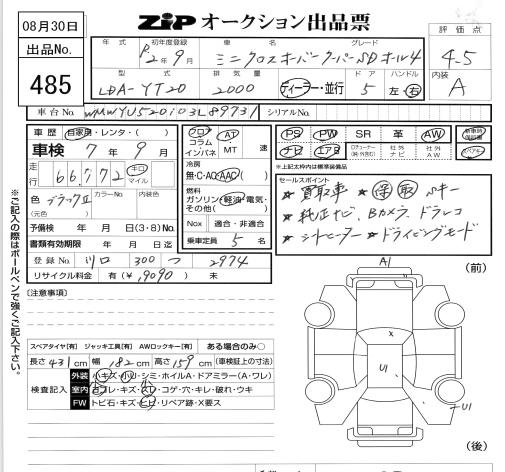 08月30日
ZiP オークション出品票
出品No.
485
評価点
4-5
内装
A
年式 初年度登録 車名 グレード
R2年9月 ミニクロスオーバー クーパーSD オール4
型式 排気量 ドア ハンドル
LDA-YT20 2000 ディーラー・並行 5 左・右
車台No. WMWYU520103L89731 シリアルNo.
車歴 自家用・レンタ・( )
車検 7年9月
走行 66,772 キロ マイル
色 ブラックⅡ カラーNo. 内装色
(元色)
予備検 年 月 日(3・8)No.
書類有効期限 年 月 日迄
登録No. 川口 300 つ 2974
リサイクル料金 有(¥,9090) 未
フロア コラム インパネ
AT MT 速
冷房
無・C・AC・AAC( )
燃料
ガソリン・軽油・電気・その他( )
Nox 適合・非適合
乗車定員 5 名
PS PW SR 革 AW 新車時保証書
ナビ エアB 社外ナビ 社外AW
*上記太枠内は標準装備品
セールスポイント
★買取車 ★保 取 Sキー
★純正ナビ、Bカメラ、ドラレコ
★シートヒーター ★ドライビングモード
※ご記入の際はボールペンで強くご記入下さい。
[注意事項]
A1
(前)
x
U1
U1
(後)
スペアタイヤ[有] ジャッキ工具[有] AWロックキー[有] ある場合のみ○
長さ431cm 幅182cm 高さ159cm (車検証上の寸法)
検査記入
外装 小キズ・小ハリ・シミ・ホイルA・ドアミラー(A・ワレ)
室内 汚コレ・キズ・スレ・コゲ・穴・キレ・破れ・ウキ
FW トビ石・キズ・ヒビ・リペア跡・X要ス